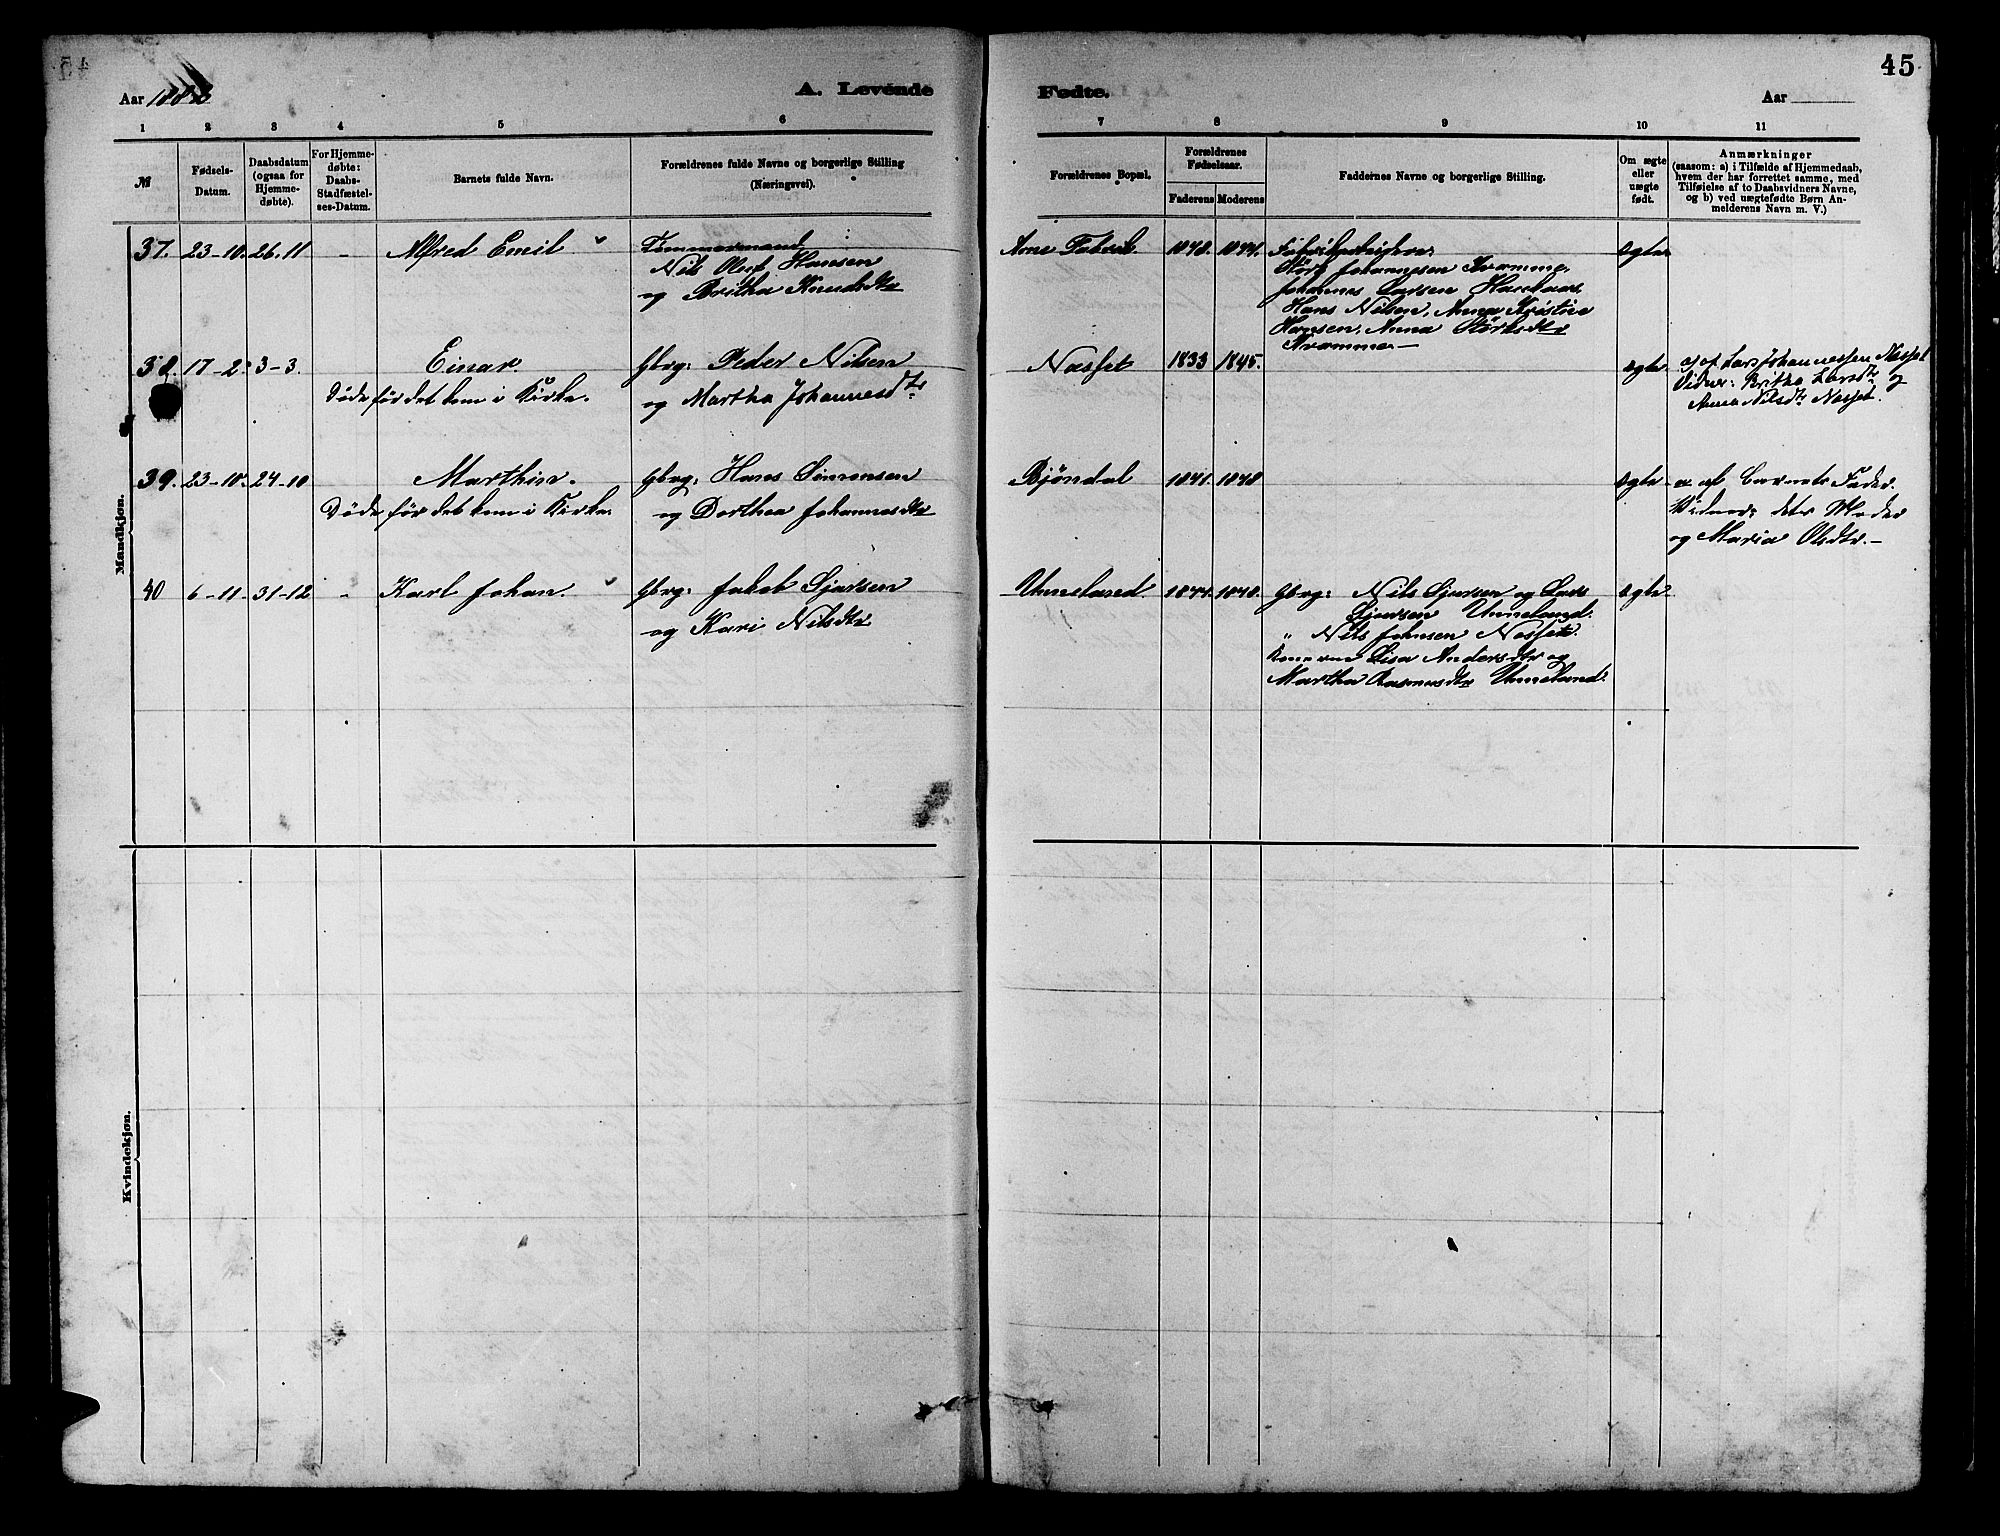 45
Aar 188
A. Levende Fødte.
Aar
1 2 3 4 5 6 7 8 9 10 11
№
Fødsels-
Datum.
Daabsdatum
(ogsaa for
Hjemme-
døbte).
For Hjemme-
døbte:
Daabs-
Stadfæstel-
ses-Datum.
Barnets fulde Navn.
Forældrenes fulde Navne og borgerlige Stilling
(Næringsvei).
Forældrenes Bopæl.
Forældrenes
Fødselsaar.
Faderens Moderens
Faddernes Navne og borgerlige Stilling.
Om ægte
eller
uægte
født.
Anmærkninger
(saasom: a) i Tilfælde af Hjemmedaab,
hvem der har forrettet samme, med
Tilføielse af to Daabsvidners Navne,
og b) ved uægtefødte Børn An-
melderens Navn m. V.)
Mandkjøn.
37. 23-10. 26.11 - Alfred Emil
Tømmermand
Nils Oluf Hansen
og Britha Knudsdtr
Arne Fabrik 1848. 1844.
Fabrikarbeidere:
Størk Johannesen Kramme
Johannes Larsen
Hans Nilsen, Anna Kristine
Hansen, Anna Størksdtr
Kramme—
ægte
38. 17-2. 3-3. Einar
Døde før det kom i Kirke.
Gbrg: Peder Nilsen
og Martha Johannesdtr
Næsset 1833 1845.
ægte
a, af Lars Johannessen Næsset
Vidner: Britha Larsdtr og
Anna Nilsdtr Næsset.
39. 23-10. 24-10 Marthin.
Døde før det kom i Kirke.
Gbrg: Hans Simonsen
og Dorthea Johannesdtr
Bjøndal 1841. 1848
ægte
a, af Barnets Fader.
Vidner: dets Moder
og Maria Olsdtr.—
40 6-11. 31-12 - Karl Johan
Gbrg: Jakob Sjursen
og Kari Nilsdtr
Unneland 1844. 1848.
Gbrg: Nils Sjursen og Lars
Sjursen Unneland.
" Nils Johnsen Næsset.
Konerne Lisa Andersdtr og
Martha Rasmusdtr Unneland.
ægte
Kvindekjøn.